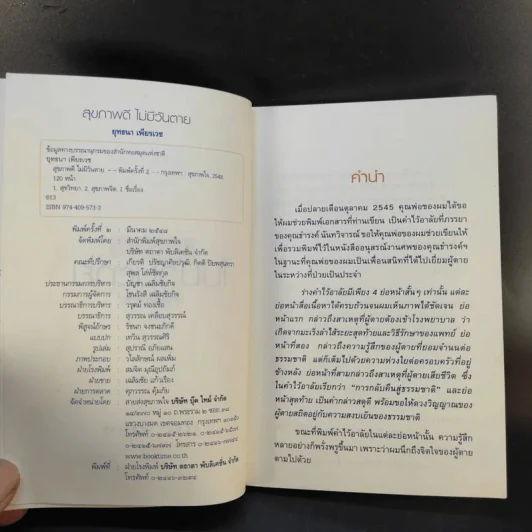 สุขภาพดี ไม่มีวันตาย
ยุทธนา เพียรเวช
ข้อมูลทางบรรณานุกรมของสำนักหอสมุดแห่งชาติ
ยุทธนา เพียรเวช
สุขภาพดี ไม่มีวันตาย - - พิมพ์ครั้งที่ 2. - - กรุงเทพฯ : สุขภาพใจ, 2548.
120 หน้า
1. สุขวิทยา. 2. สุขภาพจิต. I. ชื่อเรื่อง
613
ISBN 974-409-573-3
พิมพ์ครั้งที่ ๒ : มีนาคม ๒๕๔๘
จัดพิมพ์โดย : สำนักพิมพ์สุขภาพใจ
บริษัท ตถาตา พับลิเคชั่น จำกัด
คณะที่ปรึกษา : เกียรติ ปรัชญาศิลปวุฒิ, กิตติ ปิยพสุนทรา
สุพล
ประธานกรรมการบริหาร : บัญชา เฉลิมชัยกิจ
กรรมการผู้จัดการ : โชนรังสี เฉลิมชัยกิจ
บรรณาธิการบริหาร : วรุตม์ ทองเชื้อ
บรรณาธิการ : สุวรรณ เคลือบสุวรรณ์
พิสูจน์อักษร : วัชนก จงชนะภักดี
แบบปก : เทวัน สุวรรณศิริ
รูปเล่ม : สุปราณี อภัยแสน
ภาพประกอบ : วไลลักษณ์ ผลเพิ่ม
ฝ่ายโรงพิมพ์ : สมจิต
ฝ่ายขาย : เฉลิมชัย แก้วเรือง
ฝ่ายการตลาด : ศุภวรรณ คุ้มภัย
จัดจำหน่ายโดย : สายส่งสุขภาพใจ บริษัท บุ๊ค ไทม์ จำกัด
หมู่ ๑๐ ถ.พระราม ๒ ซอย
แขวงบางมด เขตจอมทอง กรุงเทพฯ
โทรศัพท์
โทรสาร
www.booktime.co.th
พิมพ์ที่ : ฝ่ายโรงพิมพ์ บริษัท ตถาตา พับลิเคชั่น จำกัด
โทรศัพท์
คำนำ
เมื่อปลายเดือนตุลาคม 2545 คุณพ่อของผมได้ขอ
ให้ผมช่วยพิมพ์เอกสารที่ท่านเขียน เป็นคำไว้อาลัยที่ภรรยา
ของคุณธำรงค์ นันทวิจารณ์ ขอให้คุณพ่อของผมช่วยเขียนให้
เพื่อรวมพิมพ์ไว้ในหนังสืออนุสรณ์งานศพของคุณธำรงค์ฯ
ในฐานะที่คุณพ่อของผมเป็นเพื่อนสนิทที่ได้ไปเยี่ยมผู้ตาย
ในระหว่างที่ป่วยเป็นประจำ
ร่างคำไว้อาลัยมีเพียง 4 ย่อหน้าสั้นๆ เท่านั้น แต่ละ
ย่อหน้าสื่อเนื้อหาได้ครบถ้วนจนผมเห็นภาพได้ชัดเจน ย่อ
หน้าแรก กล่าวถึงสาเหตุที่ผู้ตายต้องเข้าโรงพยาบาล ว่า
เกิดจากมะเร็งลำไส้ระยะสุดท้ายและวิธีรักษาของแพทย์ ย่อ
หน้าที่สอง กล่าวถึงความรู้สึกของผู้ตายที่ยอมจำนนต่อ
ธรรมชาติ แต่ก็เต็มไปด้วยความห่วงใยต่อครอบครัวที่อยู่
ข้างหลัง ย่อหน้าที่สามกล่าวถึงสาเหตุที่ผู้ตายเสียชีวิต ซึ่ง
ในคำไว้อาลัยเรียกว่า "การกลับคืนสู่ธรรมชาติ" และย่อ
หน้าสุดท้าย เป็นคำกล่าวสดุดี พร้อมขอให้ดวงวิญญาณของ
ผู้ตายสถิตอยู่กับความสงบเย็นของธรรมชาติ
ขณะที่พิมพ์คำไว้อาลัยในแต่ละย่อหน้านั้น ความรู้สึก
หลายอย่างก็พรั่งพรูขึ้นมา เพราะว่าผมนึกถึงจิตใจของผู้ตาย
ตามไปด้วย